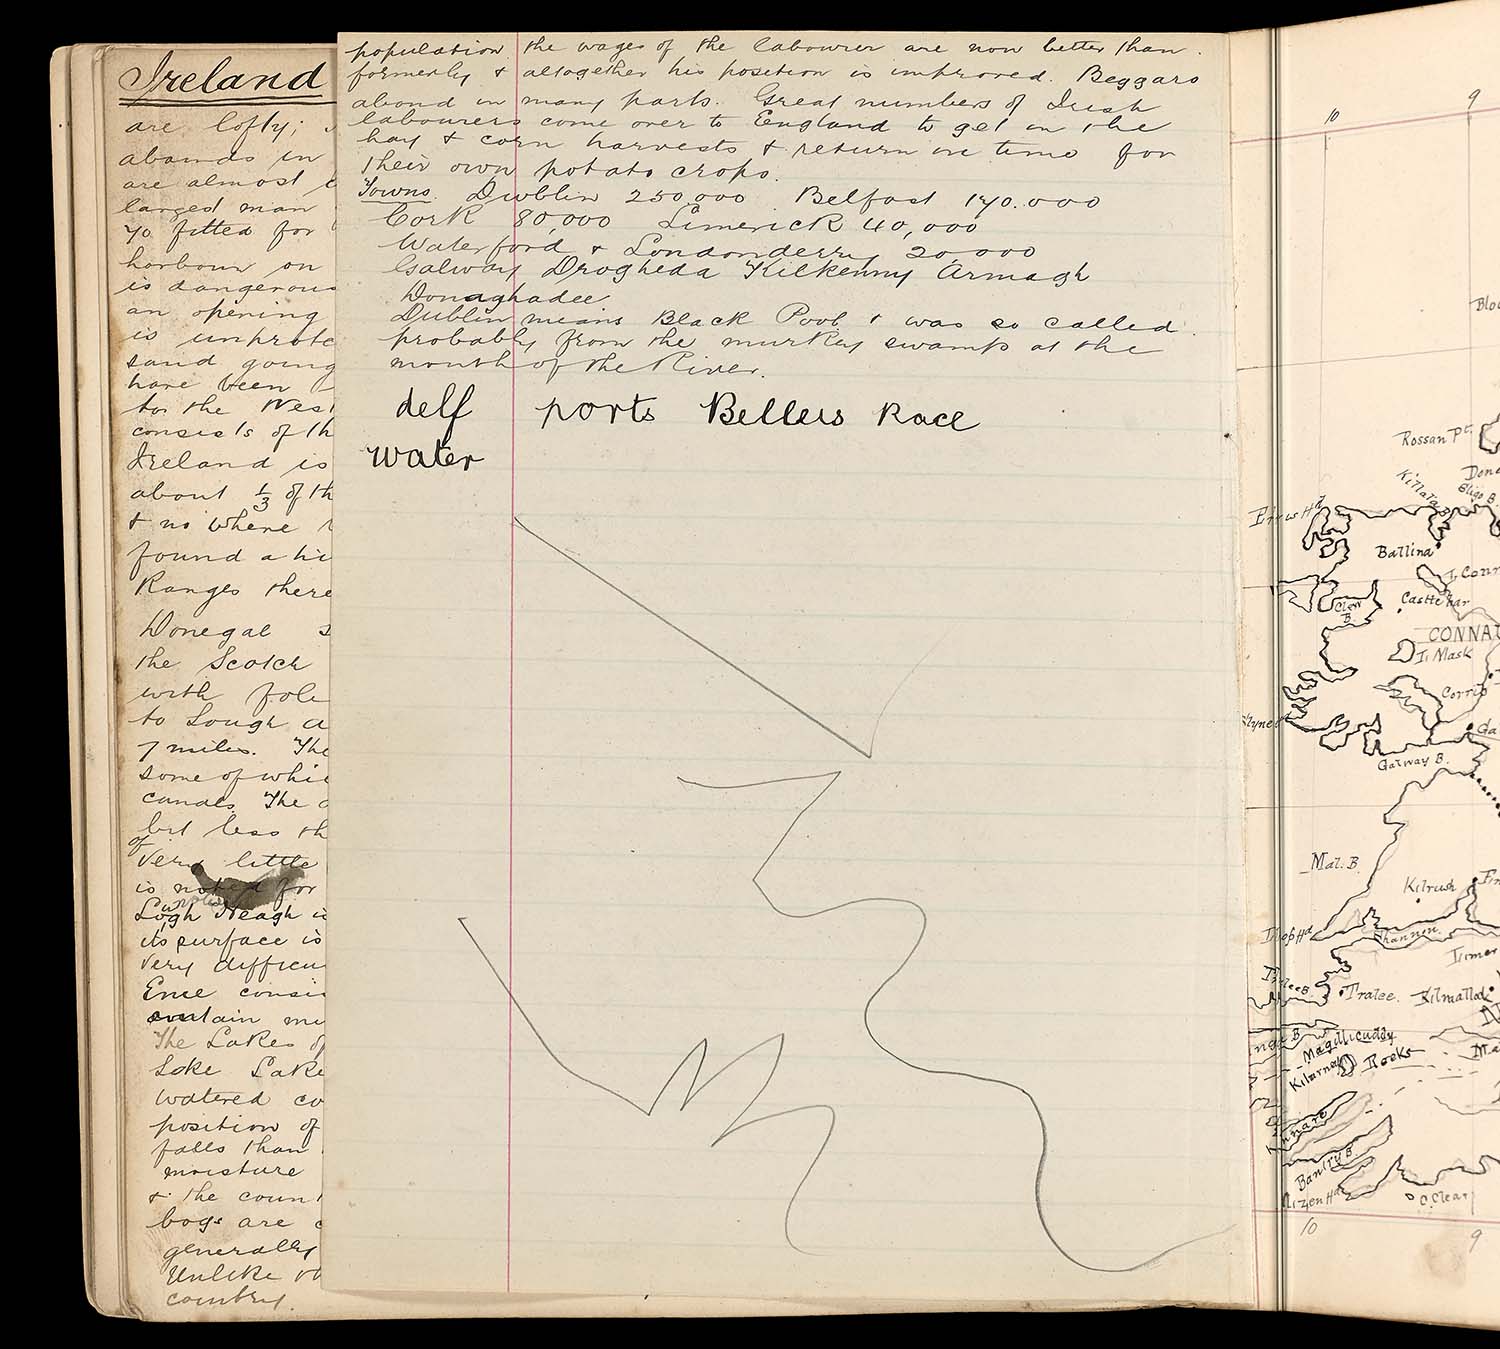 Ireland
are lofty;
abounds in
are almost
larged man
70 fitted for
harbour on
is dangerous
an opening
is unprote
sand going
have been
for the West
consists of th
Ireland is
about 1/3 of th
& no where
found a hi
Ranges there
Donegal
the Scotch
with fole
to Lough
7 miles. The
some of whi
canals. The
but less th
of
very little
is noted for
Logh Neagh is
its surface is
very difficu
Erne consi
contain
The Lakes of
Loke Lake
watered co
position of
falls than
moisture
& the count
bogs are
generally
Unlike
country.
population the wages of the labourer are now better than
formerly & altogether his position is improved. Beggars
abond in many parts. Great numbers of Irish
labourers come over to England to get in the
hay & corn harvests & return in time for
their own potato crops.
Towns. Dublin 250,000 Belfast 170.000
Cork 80,000 Limerick 40,000
Waterford & Londonderry 20,000
Galway Drogheda Kilkenny Armagh
Donaghadee
Dublin means Black Pool & was so called
probably from the murky swamps at the
mouth of the River.
delf ports Bellers Race
water
10
9
Rossan Pt.
Done
Killala
Sligo B.
Erris Hd
Ballina
L. Conn
Castlebar
Clew
B.
CONNAU
L. Mask
Corrib
Slyne
Ga
Galway B.
Mal. B.
Kilrush
En
Loop Hd
Shannon.
Limer
Tralee B.
Tralee.
Kilmallock
Magillicuddy
Reeks
Killarney
Ma
Kenmare
Bantry B.
Mizen Hd
C. Clear
10
9